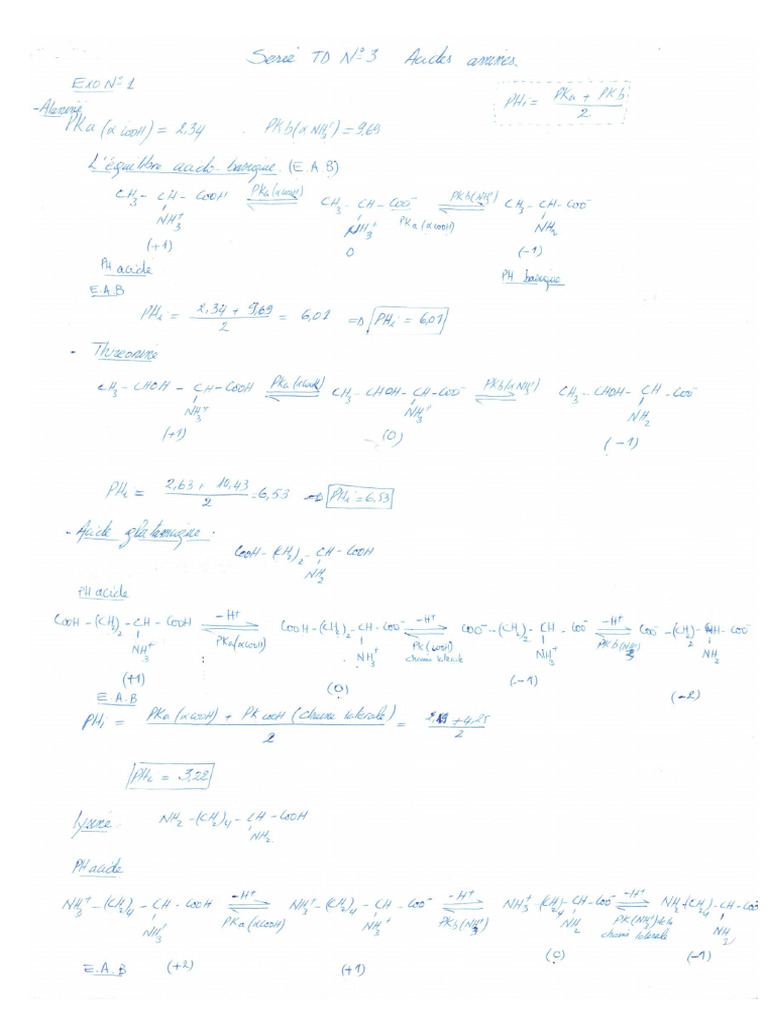 Serie TD N°3 Acides aminés
Exo N°1
PHi = (PKa + PKb) / 2
- Alanine
PKa (α COOH) = 2,34 . PKb (α NH3+) = 9,69
L'équilibre acido-basique. (E.A.B)
CH3 - CH - COOH ⇌ PKa (α COOH) CH3 - CH - COO- ⇌ PKb (NH3+) CH3 - CH - COO-
PKa (α COOH)
NH3+ NH3+ NH2
(+1) 0 (-1)
PH acide PH basique
E.A.B
PHi = (2,34 + 9,69) / 2 = 6,01 ⇒ PHi = 6,01
- Threonine
CH3 - CHOH - CH - COOH ⇌ PKa (α COOH) CH3 - CHOH - CH - COO- ⇌ PKb (α NH3+) CH3 - CHOH - CH - COO-
NH3+ NH3+ NH2
(+1) (0) (-1)
PHi = (2,63 + 10,43) / 2 = 6,53 ⇒ PHi = 6,53
- Acide glutamique :
COOH - (CH2)2 - CH - COOH
NH2
PH acide
COOH - (CH2)2 - CH - COOH ⇌ -H+ PKa (α COOH) COOH - (CH2)2 - CH - COO- ⇌ -H+ PK (COOH) chaine laterale COO- - (CH2)2 - CH - COO- ⇌ -H+ PKb (NH3) COO- - (CH2)2 - CH - COO-
NH3+ NH3+ NH3+ NH2
(+1) (0) (-1) (-2)
E.A.B
PHi = (PKa (α COOH) + PK COOH (chaine laterale)) / 2 = (2,19 + 4,25) / 2
PHi = 3,22
Lysine. NH2 - (CH2)4 - CH - COOH
NH2
PH acide
NH3+ - (CH2)4 - CH - COOH ⇌ -H+ PKa (α COOH) NH3+ - (CH2)4 - CH - COO- ⇌ -H+ PKb (NH3+) NH3+ - (CH2)4 - CH - COO- ⇌ -H+ PK (NH3+) chaine laterale NH2 - (CH2)4 - CH - COO-
NH3+ NH3+ NH2 NH2
E.A.B (+2) (+1) (0) (-1)